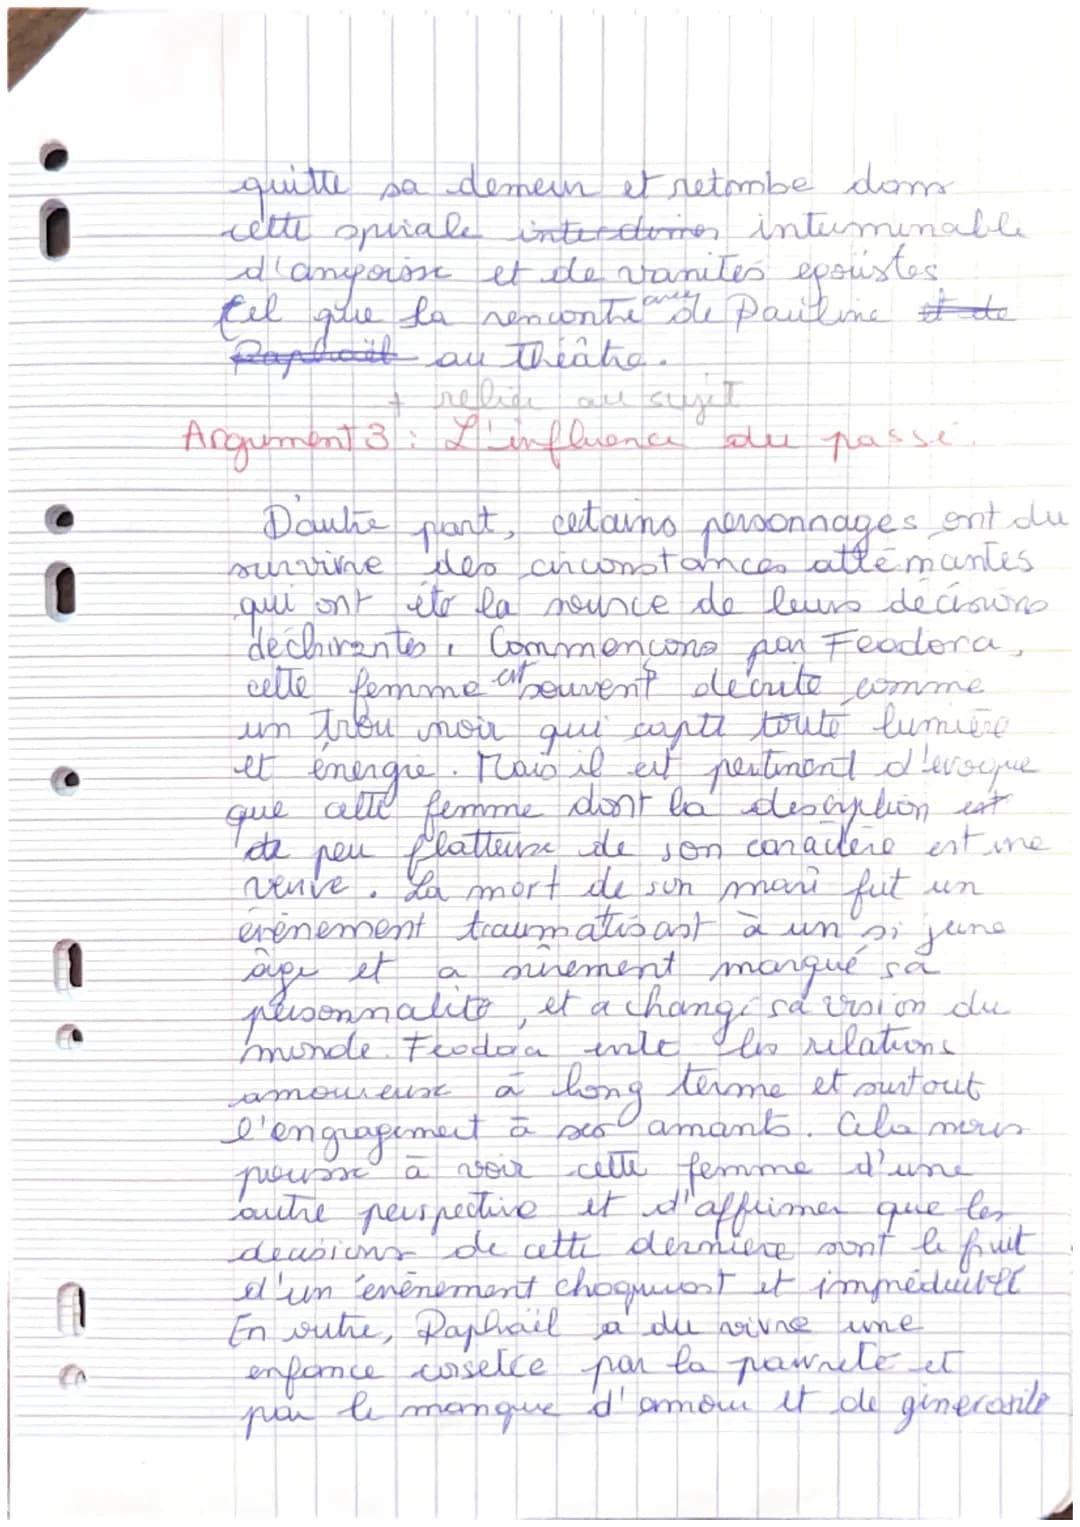 quitte sa demeur et retombe dans
cette spirale interdomes interminable
d'angoisse et de vanités egoïstes
tel que la rencontre avec de Pauline et de
Raphaël au théâtre.
+ relier au sujet
Argument 3 : L'influence du passé.
D'autre part, certains personnages ont du
survivre des circonstances atténuantes
qui ont été la source de leurs décisions
déchirantes. Commençons par Feodora,
cette femme est souvent décrite comme
un trou noir qui capte toute lumière
et énergie. Mais il est pertinent d'évoque
que cette femme dont la description est
de peu flatteuse de son caractère est une
veuve. La mort de son mari fut un
évènement traumatisant à un si jeune
âge et a sûrement marqué sa
personnalité, et a changé sa vision du
monde. Feodora evite les relations
amoureuse à long terme et surtout
l'engagement à ses amants. Cela nous
pousse à voir cette femme d'une
autre perspective et d'affirmer que les
decisions de cette dernière sont le fruit
d'un évènement choquant et imprédictible
En outre, Raphaël a du vivre une
enfance par la pauvreté et
par le manque d'amour et de génerosité